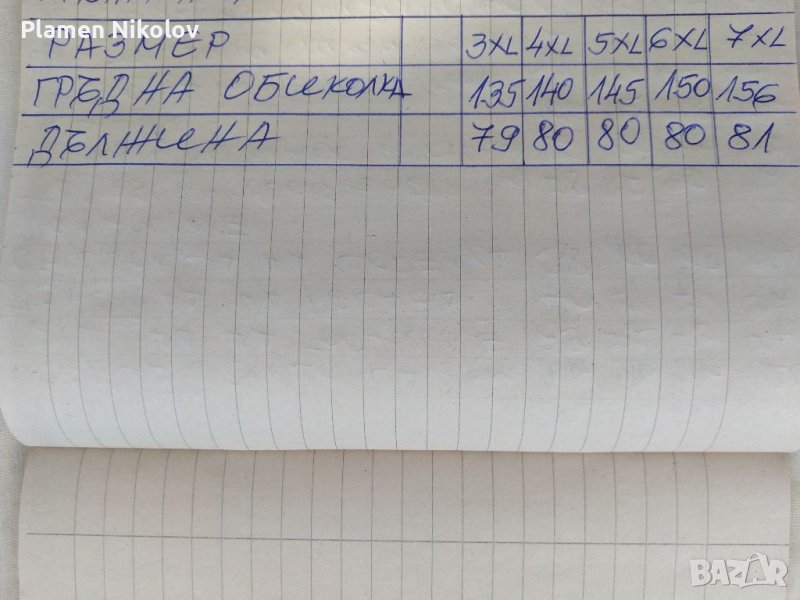 Plamen Nikolov
РАЗМЕР 3XL 4XL 5XL 6XL 7XL
ГРЪДНА ОБИКОЛКА 135 140 145 150 156
ДЪЛЖИНА 79 80 80 80 81
BAZAR